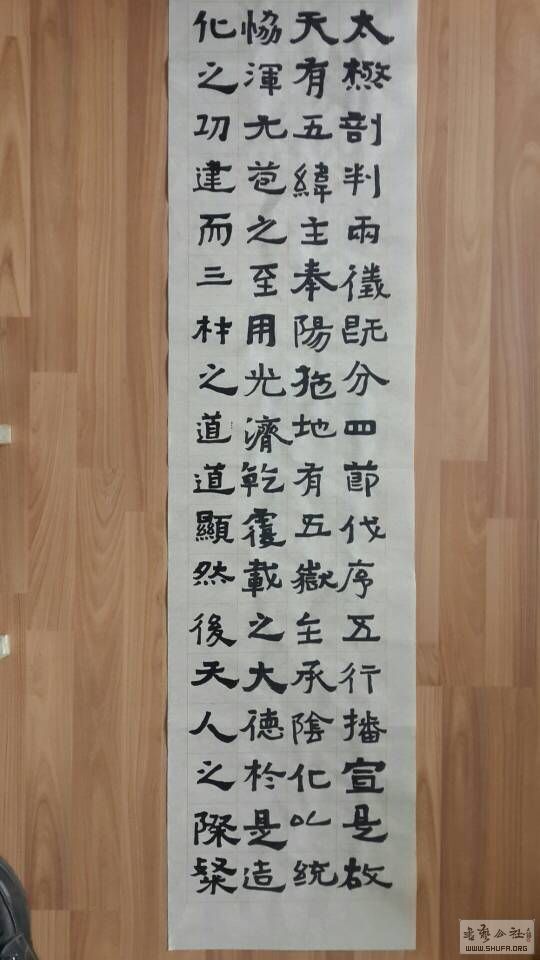 太極剖判兩儀既分四節代序五行播宣是故
天有五緯主奉陽施地有五嶽主承陰化以統
恊渾元苞之至用光濟乾覆載之大德於是造
化之功建而三材之道道顯然後天人之際粲
书艺公社
WWW.SHUFA.ORG